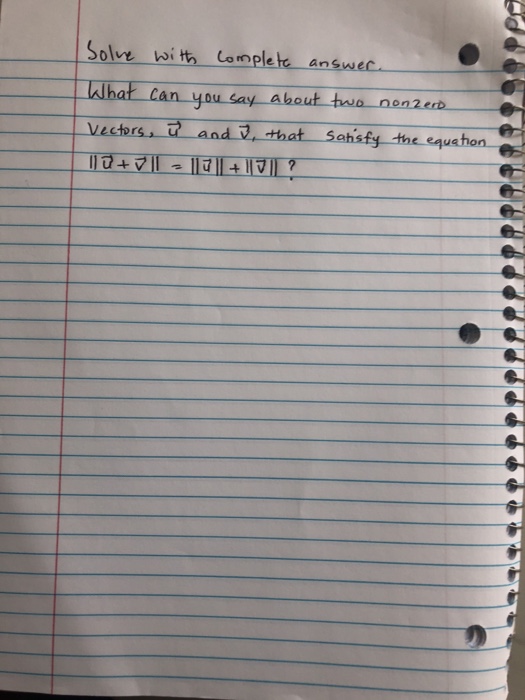 Solve with complete answer.
What can you say about two nonzero
vectors, u⃗ and v⃗, that satisfy the equation
||u⃗ + v⃗|| = ||u⃗|| + ||v⃗|| ?